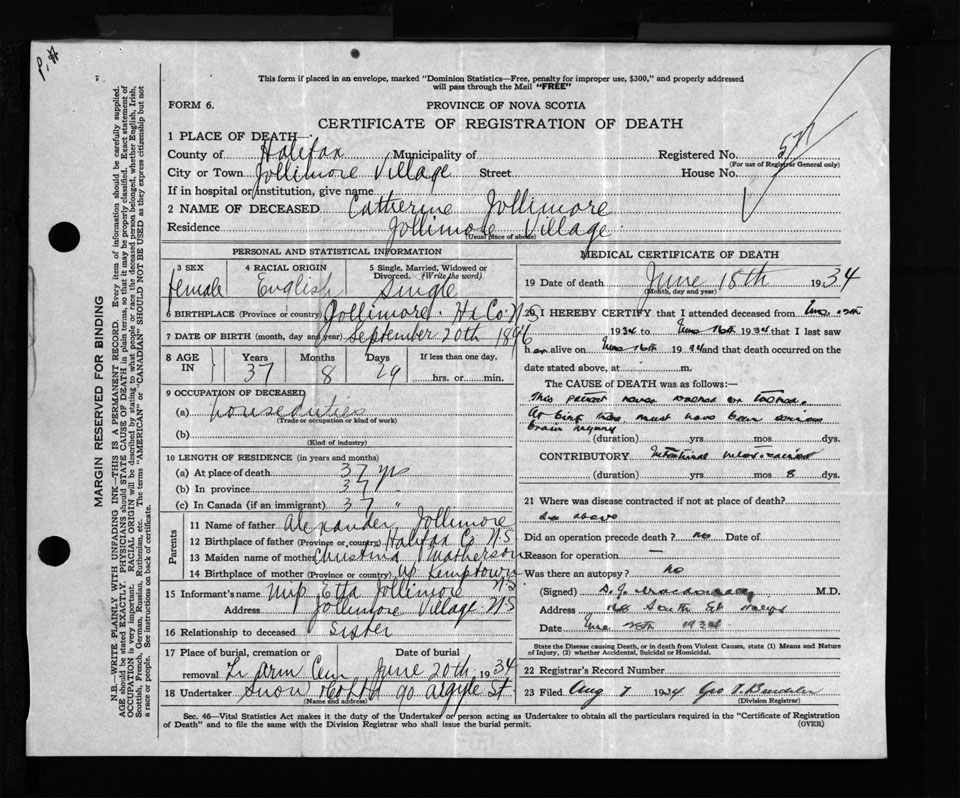 This form if placed in an envelope, marked "Dominion Statistics—Free, penalty for improper use, $300," and properly addressed
will pass through the Mail "FREE"
FORM 6.
PROVINCE OF NOVA SCOTIA
CERTIFICATE OF REGISTRATION OF DEATH
1 PLACE OF DEATH—
County of Halifax Municipality of Registered No.
(For use of Registrar General only)
City or Town Jollimore Village Street House No.
If in hospital or institution, give name
2 NAME OF DECEASED Catherine Jollimore
Residence Jollimore Village
(Usual place of abode)
PERSONAL AND STATISTICAL INFORMATION
3 SEX 4 RACIAL ORIGIN 5 Single, Married, Widowed or Divorced. (Write the word)
female English Single
6 BIRTHPLACE (Province or country) Jollimore. Hx Co. N.S
7 DATE OF BIRTH (month, day and year) September 20th 1896
8 AGE IN Years Months Days If less than one day,
37 8 29 hrs. or min.
9 OCCUPATION OF DECEASED
(a) house duties
(Trade or occupation or kind of work)
(b)
(Kind of industry)
10 LENGTH OF RESIDENCE (in years and months)
(a) At place of death 37 yrs
(b) In province 37 "
(c) In Canada (if an immigrant) 37 "
Parents
11 Name of father Alexander Jollimore
12 Birthplace of father (Province or country) Halifax Co N.S
13 Maiden name of mother Christina Matherson
14 Birthplace of mother (Province or country) Up Kemptown N.S
15 Informant's name Etta Jollimore
Address Jollimore Village N.S
16 Relationship to deceased Sister
17 Place of burial, cremation or removal Date of burial
Cem June 20th 1934
18 Undertaker Snow & Co Ltd 90 Argyle St
(Name and address)
MEDICAL CERTIFICATE OF DEATH
19 Date of death June 18th 1934
(Month, day and year)
20 I HEREBY CERTIFY that I attended deceased from
1934 to 16th 1934 and that I last saw
h er alive on 16th 1934 and that death occurred on the
date stated above, at m.
The CAUSE of DEATH was as follows:
This patient never walked or talked.
At birth there must have been serious
brain injury
(duration) yrs mos dys.
CONTRIBUTORY Intestinal
(duration) yrs mos 8 dys.
21 Where was disease contracted if not at place of death?
as above
Did an operation precede death? no Date of
Reason for operation —
Was there an autopsy? No
(Signed) M.D.
Address South St
Date 1934
State the Disease causing Death, or in death from Violent Causes, state (1) Means and Nature
of Injury, (2) whether Accidental, Suicidal or Homicidal.
22 Registrar's Record Number
23 Filed Aug 7 1934 Geo
(Division Registrar)
Sec. 46—Vital Statistics Act makes it the duty of the Undertaker or person acting as Undertaker to obtain all the particulars required in the "Certificate of Registration
of Death" and to file the same with the Division Registrar who shall issue the burial permit.
(OVER)
MARGIN RESERVED FOR BINDING
N.B.—WRITE PLAINLY WITH UNFADING INK—THIS IS A PERMANENT RECORD. Every item of information should be carefully supplied.
AGE should be stated EXACTLY. PHYSICIANS should STATE CAUSE OF DEATH in plain terms, so that it may be properly classified. Exact statement of
OCCUPATION is very important. RACIAL ORIGIN will be described by stating to what people or race the deceased person belonged, whether English, Irish,
Scottish, French, German, Russian, Ruthenian, etc. The terms "AMERICAN" or "CANADIAN" SHOULD NOT BE USED as they express citizenship but not
a race or people. See instructions on back of certificate.